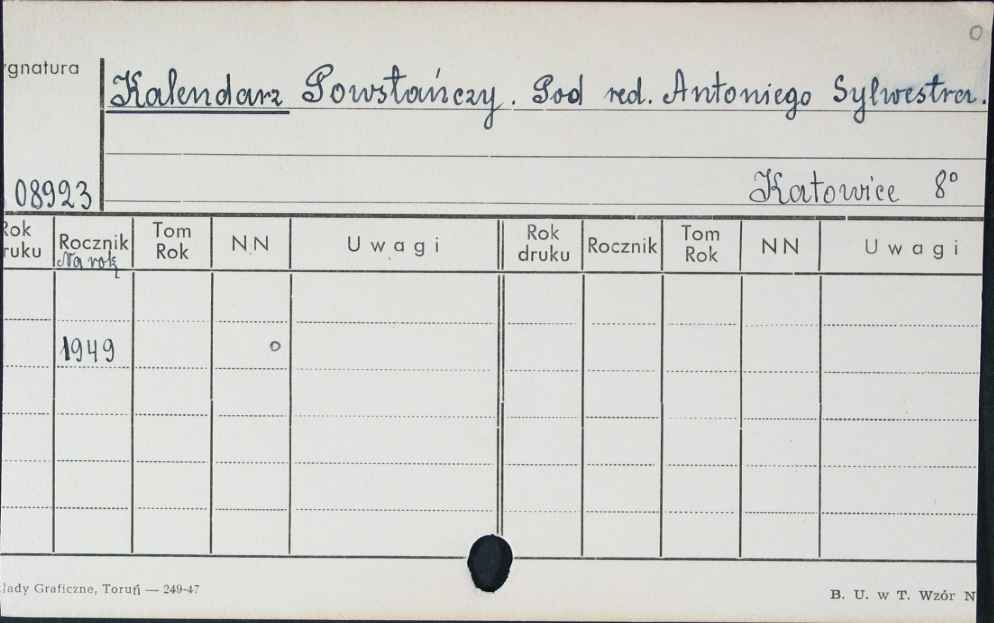 o
ygnatura
Kalendarz Powstańczy. Pod red. Antoniego Sylwestra.
08923
Katowice 8°
Rok druku Rocznik Na rok Tom Rok NN Uwagi Rok druku Rocznik Tom Rok NN Uwagi
1949 o
kłady Graficzne, Toruń — 249-47
B. U. w T. Wzór N